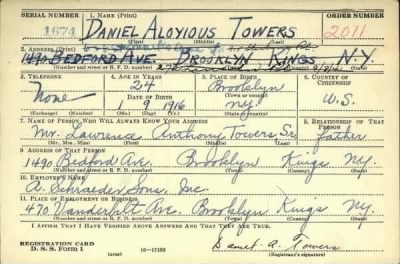 SERIAL NUMBER 1. NAME (Print) ORDER NUMBER
1674 DANIEL ALOYIOUS TOWERS 2011
(First) (Middle) (Last)
2. ADDRESS (Print)
1490 BEDFORD AVE. BROOKLYN KINGS N.Y.
(Number and street or R. F. D. number) (Town) (County) (State)
3. TELEPHONE 4. AGE IN YEARS 5. PLACE OF BIRTH 6. COUNTRY OF CITIZENSHIP
None 24 Brooklyn U.S.
DATE OF BIRTH (Town or county)
1 9 1916 NY.
(Exchange) (Number) (Mo.) (Day) (Yr.) (State or country)
7. NAME OF PERSON WHO WILL ALWAYS KNOW YOUR ADDRESS 8. RELATIONSHIP OF THAT PERSON
Mr. Lawrence Anthony Towers Sr. Father
(Mr., Mrs., Miss) (First) (Middle) (Last)
9. ADDRESS OF THAT PERSON
1490 Bedford Ave. Brooklyn Kings NY.
(Number and street or R. F. D. number) (Town) (County) (State)
10. EMPLOYER'S NAME
A. Schraeder Sons, Inc.
11. PLACE OF EMPLOYMENT OR BUSINESS
470 Vanderbilt Ave. Brooklyn Kings NY.
(Number and street or R. F. D. number) (Town) (County) (State)
I AFFIRM THAT I HAVE VERIFIED ABOVE ANSWERS AND THAT THEY ARE TRUE.
REGISTRATION CARD
D. S. S. Form 1 (over) 16—17105 Daniel A. Towers
(Registrant's signature)